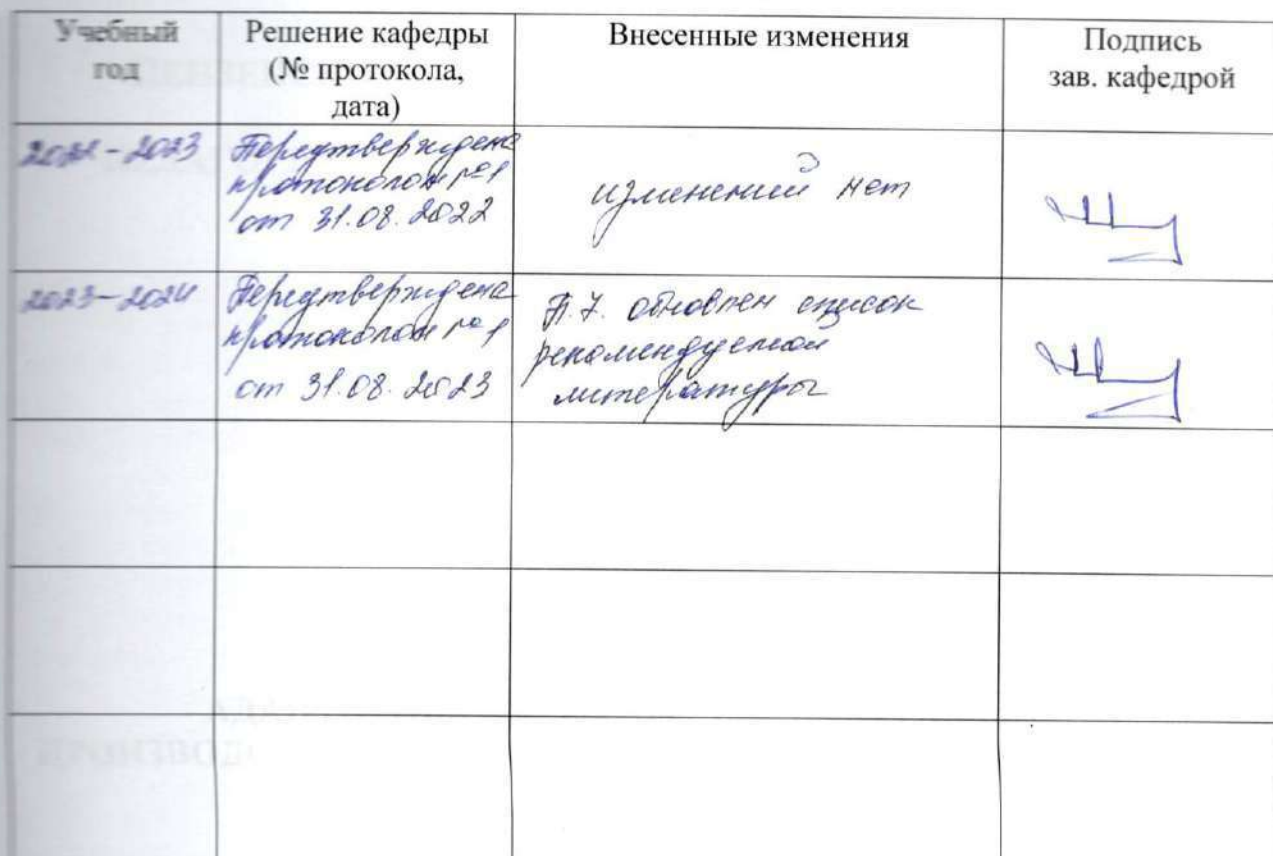 Учебный год
Решение кафедры
(№ протокола,
дата)
Внесенные изменения
Подпись
зав. кафедрой
2022-2023
Переутверждена
протоколом №1
от 31.08.2022
изменений нет
2023-2024
Переутверждена
протоколом №1
от 31.08.2023
П.7. обновлен список
рекомендуемой
литературы